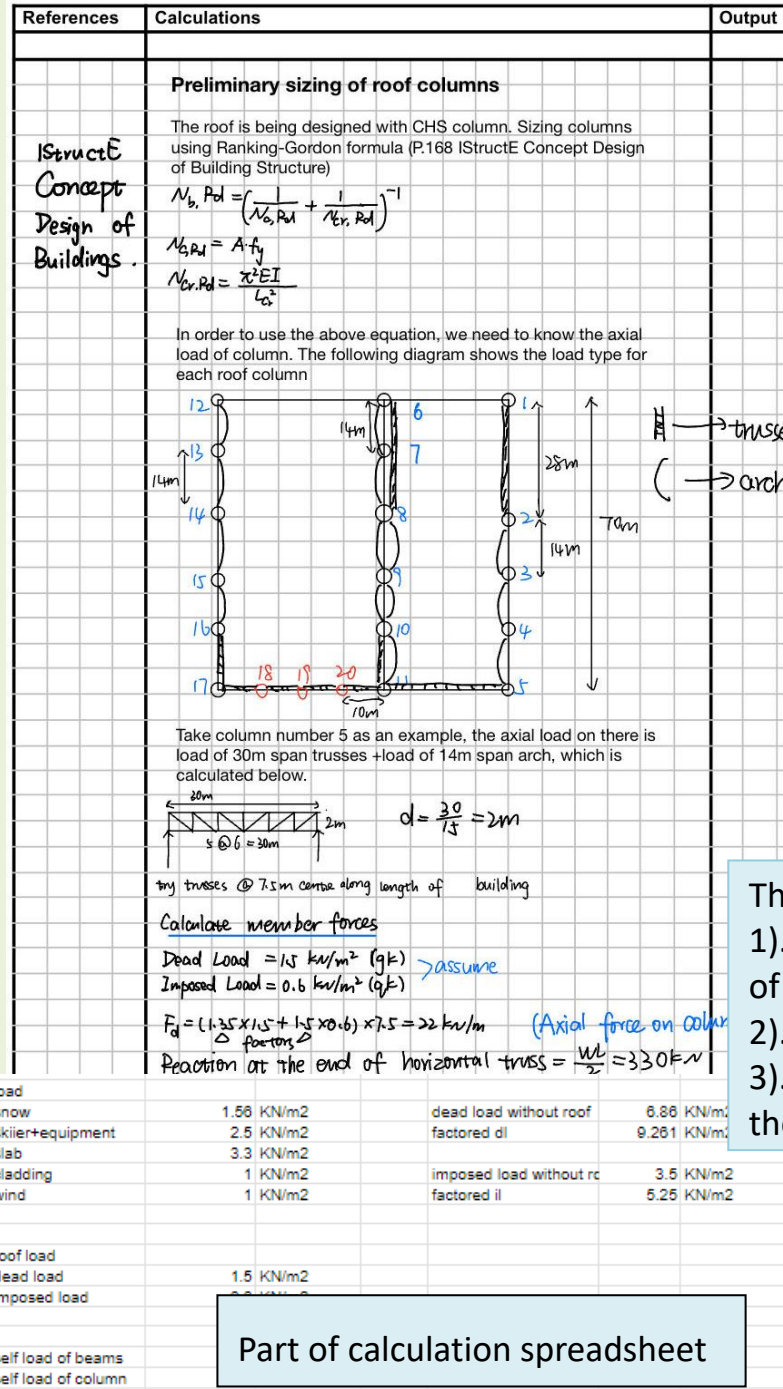 References Calculations Output
Preliminary sizing of roof columns
The roof is being designed with CHS column. Sizing columns
using Ranking-Gordon formula (P.168 IStructE Concept Design
of Building Structure)
IStructE
Concept
Design of
Buildings.
N_b, Rd = (1/N_c,Rd + 1/N_cr,Rd)^-1
N_c,Rd = A·fy
N_cr.Rd = π²EI/L_cr²
In order to use the above equation, we need to know the axial
load of column. The following diagram shows the load type for
each roof column
12 6 1
14m
13 7
14m 28m
14 8 2 70m
14m
15 9 3
16 10 4
18 19 20
17 11 5
10m
→ truss
→ arch
Take column number 5 as an example, the axial load on there is
load of 30m span trusses +load of 14m span arch, which is
calculated below.
30m
2m
5 @ 6 = 30m
d = 30/15 = 2m
try trusses @ 7.5m centre along length of building
Calculate member forces
Dead Load = 1.5 kN/m² (gk)
Imposed Load = 0.6 kN/m² (qk)
>assume
Fd = (1.35×1.5 + 1.5×0.6) ×7.5 = 22 kN/m (Axial force on colum
factors
Reaction at the end of horizontal truss = WL/2 = 330kN
Th
1).
of
2).
3).
the
oad
now 1.56 KN/m2 dead load without roof 6.86 KN/m2
kiier+equipment 2.5 KN/m2 factored dl 9.261 KN/m2
lab 3.3 KN/m2
ladding 1 KN/m2 imposed load without ro 3.5 KN/m2
vind 1 KN/m2 factored il 5.25 KN/m2
oof load
lead load 1.5 KN/m2
mposed load
elf load of beams
elf load of column
Part of calculation spreadsheet